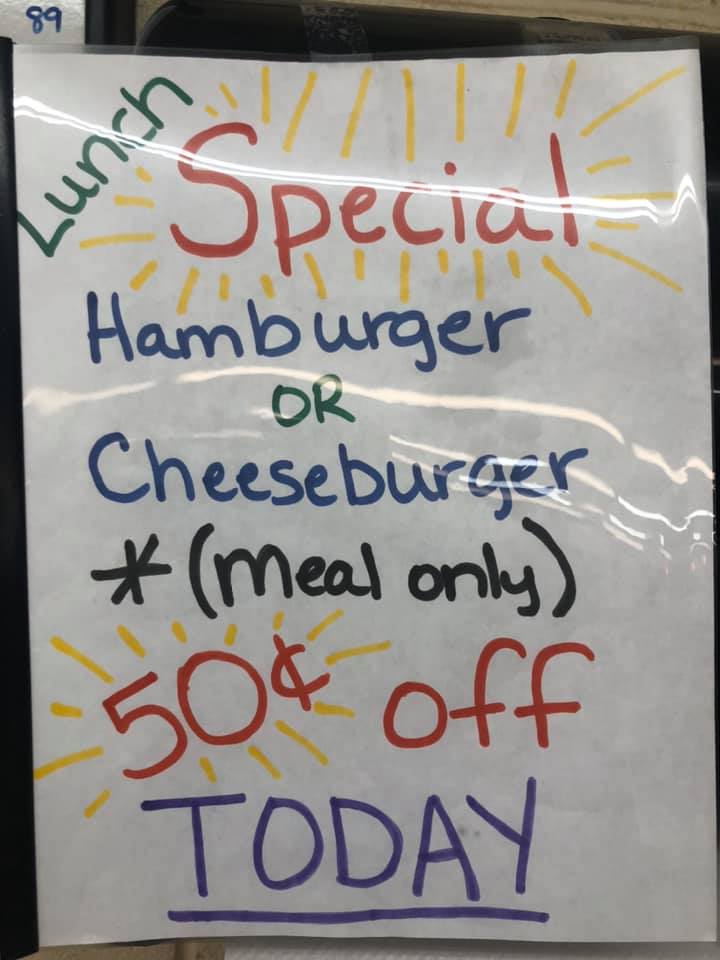 89
Lunch
Special
Hamburger
OR
Cheeseburger
*(meal only)
50¢ off
TODAY